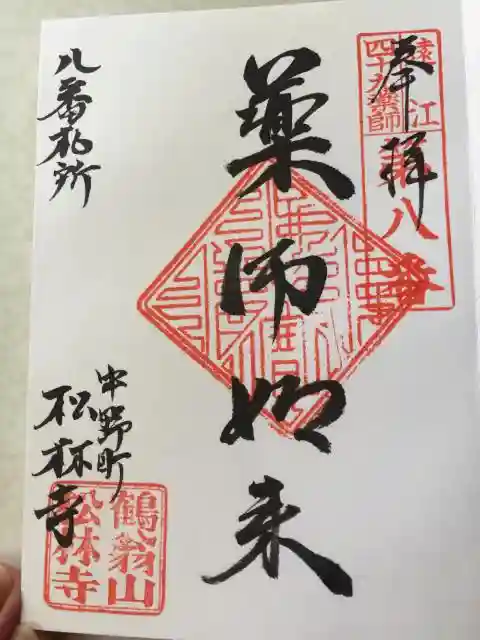 奉拝
遠江
四十九薬師
第八番
薬師如来
八番札所
中野町
松林寺
鶴翁山
松林寺